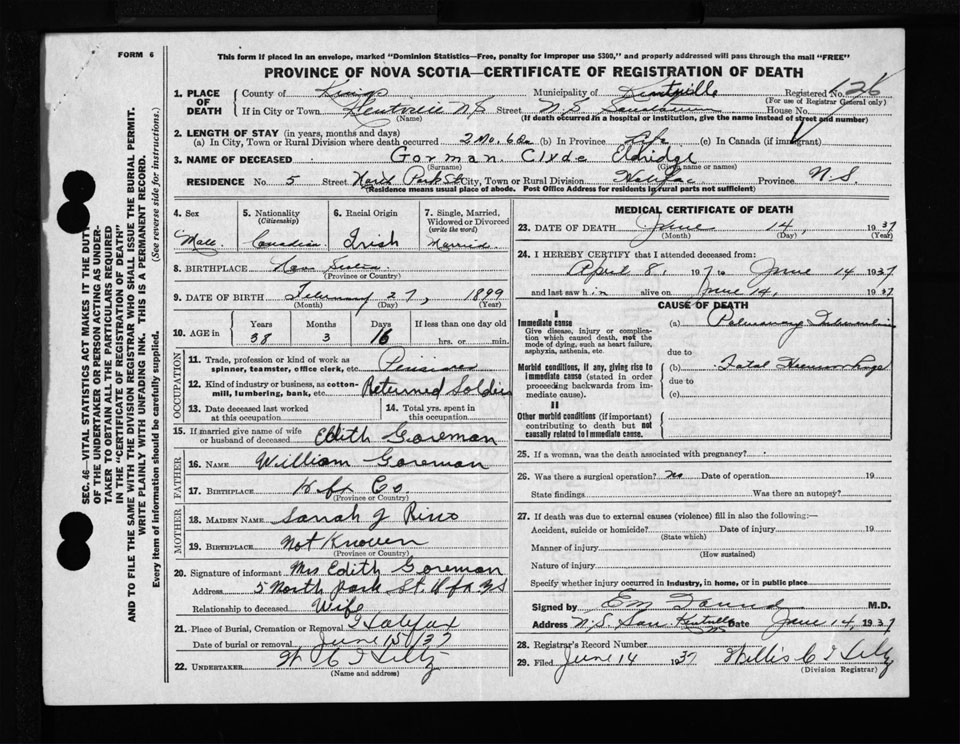 FORM 6
This form if placed in an envelope, marked "Dominion Statistics—Free, penalty for improper use $300," and properly addressed will pass through the mail "FREE"
PROVINCE OF NOVA SCOTIA—CERTIFICATE OF REGISTRATION OF DEATH
1. PLACE OF DEATH
County of Kings Municipality of Kentville Registered No. 126
(For use of Registrar General only)
If in City or Town Kentville N.S Street N.S. Sanatorium House No.
(Name) (If death occurred in a hospital or institution, give the name instead of street and number)
2. LENGTH OF STAY (in years, months and days)
(a) In City, Town or Rural Division where death occurred 2 Mo. 6 Da (b) In Province Life (c) In Canada (if immigrant)
3. NAME OF DECEASED Gorman Clyde Eldridge
(Surname) (Given name or names)
RESIDENCE No. 5 Street North Park St City, Town or Rural Division Halifax Province N.S.
(Residence means usual place of abode. Post Office Address for residents in rural parts not sufficient)
4. Sex 5. Nationality 6. Racial Origin 7. Single, Married, Widowed or Divorced
(Citizenship) (write the word)
Male Canadian Irish Married
8. BIRTHPLACE Nova Scotia
(Province or Country)
9. DATE OF BIRTH February 27, 1899
(Month) (Day) (Year)
10. AGE in Years Months Days If less than one day old
38 3 16 hrs. or min.
OCCUPATION
11. Trade, profession or kind of work as spinner, teamster, office clerk, etc. Pensioner
12. Kind of industry or business, as cotton-mill, lumbering, bank, etc. Returned Soldier
13. Date deceased last worked at this occupation
14. Total yrs. spent in this occupation
15. If married give name of wife or husband of deceased Edith Goreman
FATHER
16. NAME William Goreman
17. BIRTHPLACE Hfx Co
(Province or Country)
MOTHER
18. MAIDEN NAME Sarah J
19. BIRTHPLACE Not Known
(Province or Country)
20. Signature of informant Mrs Edith Goreman
Address 5 North Park St. Hfx NS
Relationship to deceased Wife
21. Place of Burial, Cremation or Removal Halifax
Date of burial or removal June 15/37
22. UNDERTAKER
(Name and address)
MEDICAL CERTIFICATE OF DEATH
23. DATE OF DEATH June 14, 1937
(Month) (Day) (Year)
24. I HEREBY CERTIFY that I attended deceased from:
April 8, 1937 to June 14 1937
and last saw him alive on June 14, 1937
CAUSE OF DEATH
I
Immediate cause (a) Pulmonary Tuberculosis
Give disease, injury or complication which caused death, not the mode of dying, such as heart failure, asphyxia, asthenia, etc.
due to
Morbid conditions, if any, giving rise to immediate cause (stated in order proceeding backwards from immediate cause).
(b) Fatal Hemorrhage
due to
(c)
II
Other morbid conditions (if important) contributing to death but not causally related to immediate cause.
25. If a woman, was the death associated with pregnancy?
26. Was there a surgical operation? No Date of operation 19
State findings Was there an autopsy?
27. If death was due to external causes (violence) fill in also the following:—
Accident, suicide or homicide? Date of injury 19
(State which)
Manner of injury
(How sustained)
Nature of injury
Specify whether injury occurred in industry, in home, or in public place
Signed by M.D.
Address N.S. San. Kentville NS Date June 14, 1937
28. Registrar's Record Number
29. Filed June 14 1937
(Division Registrar)
SEC. 46—VITAL STATISTICS ACT MAKES IT THE DUTY
OF THE UNDERTAKER OR PERSON ACTING AS UNDERTAKER TO OBTAIN ALL THE PARTICULARS REQUIRED
IN THE "CERTIFICATE OF REGISTRATION OF DEATH"
AND TO FILE THE SAME WITH THE DIVISION REGISTRAR WHO SHALL ISSUE THE BURIAL PERMIT.
WRITE PLAINLY WITH UNFADING INK. THIS IS A PERMANENT RECORD.
Every item of information should be carefully supplied. (See reverse side for instructions.)